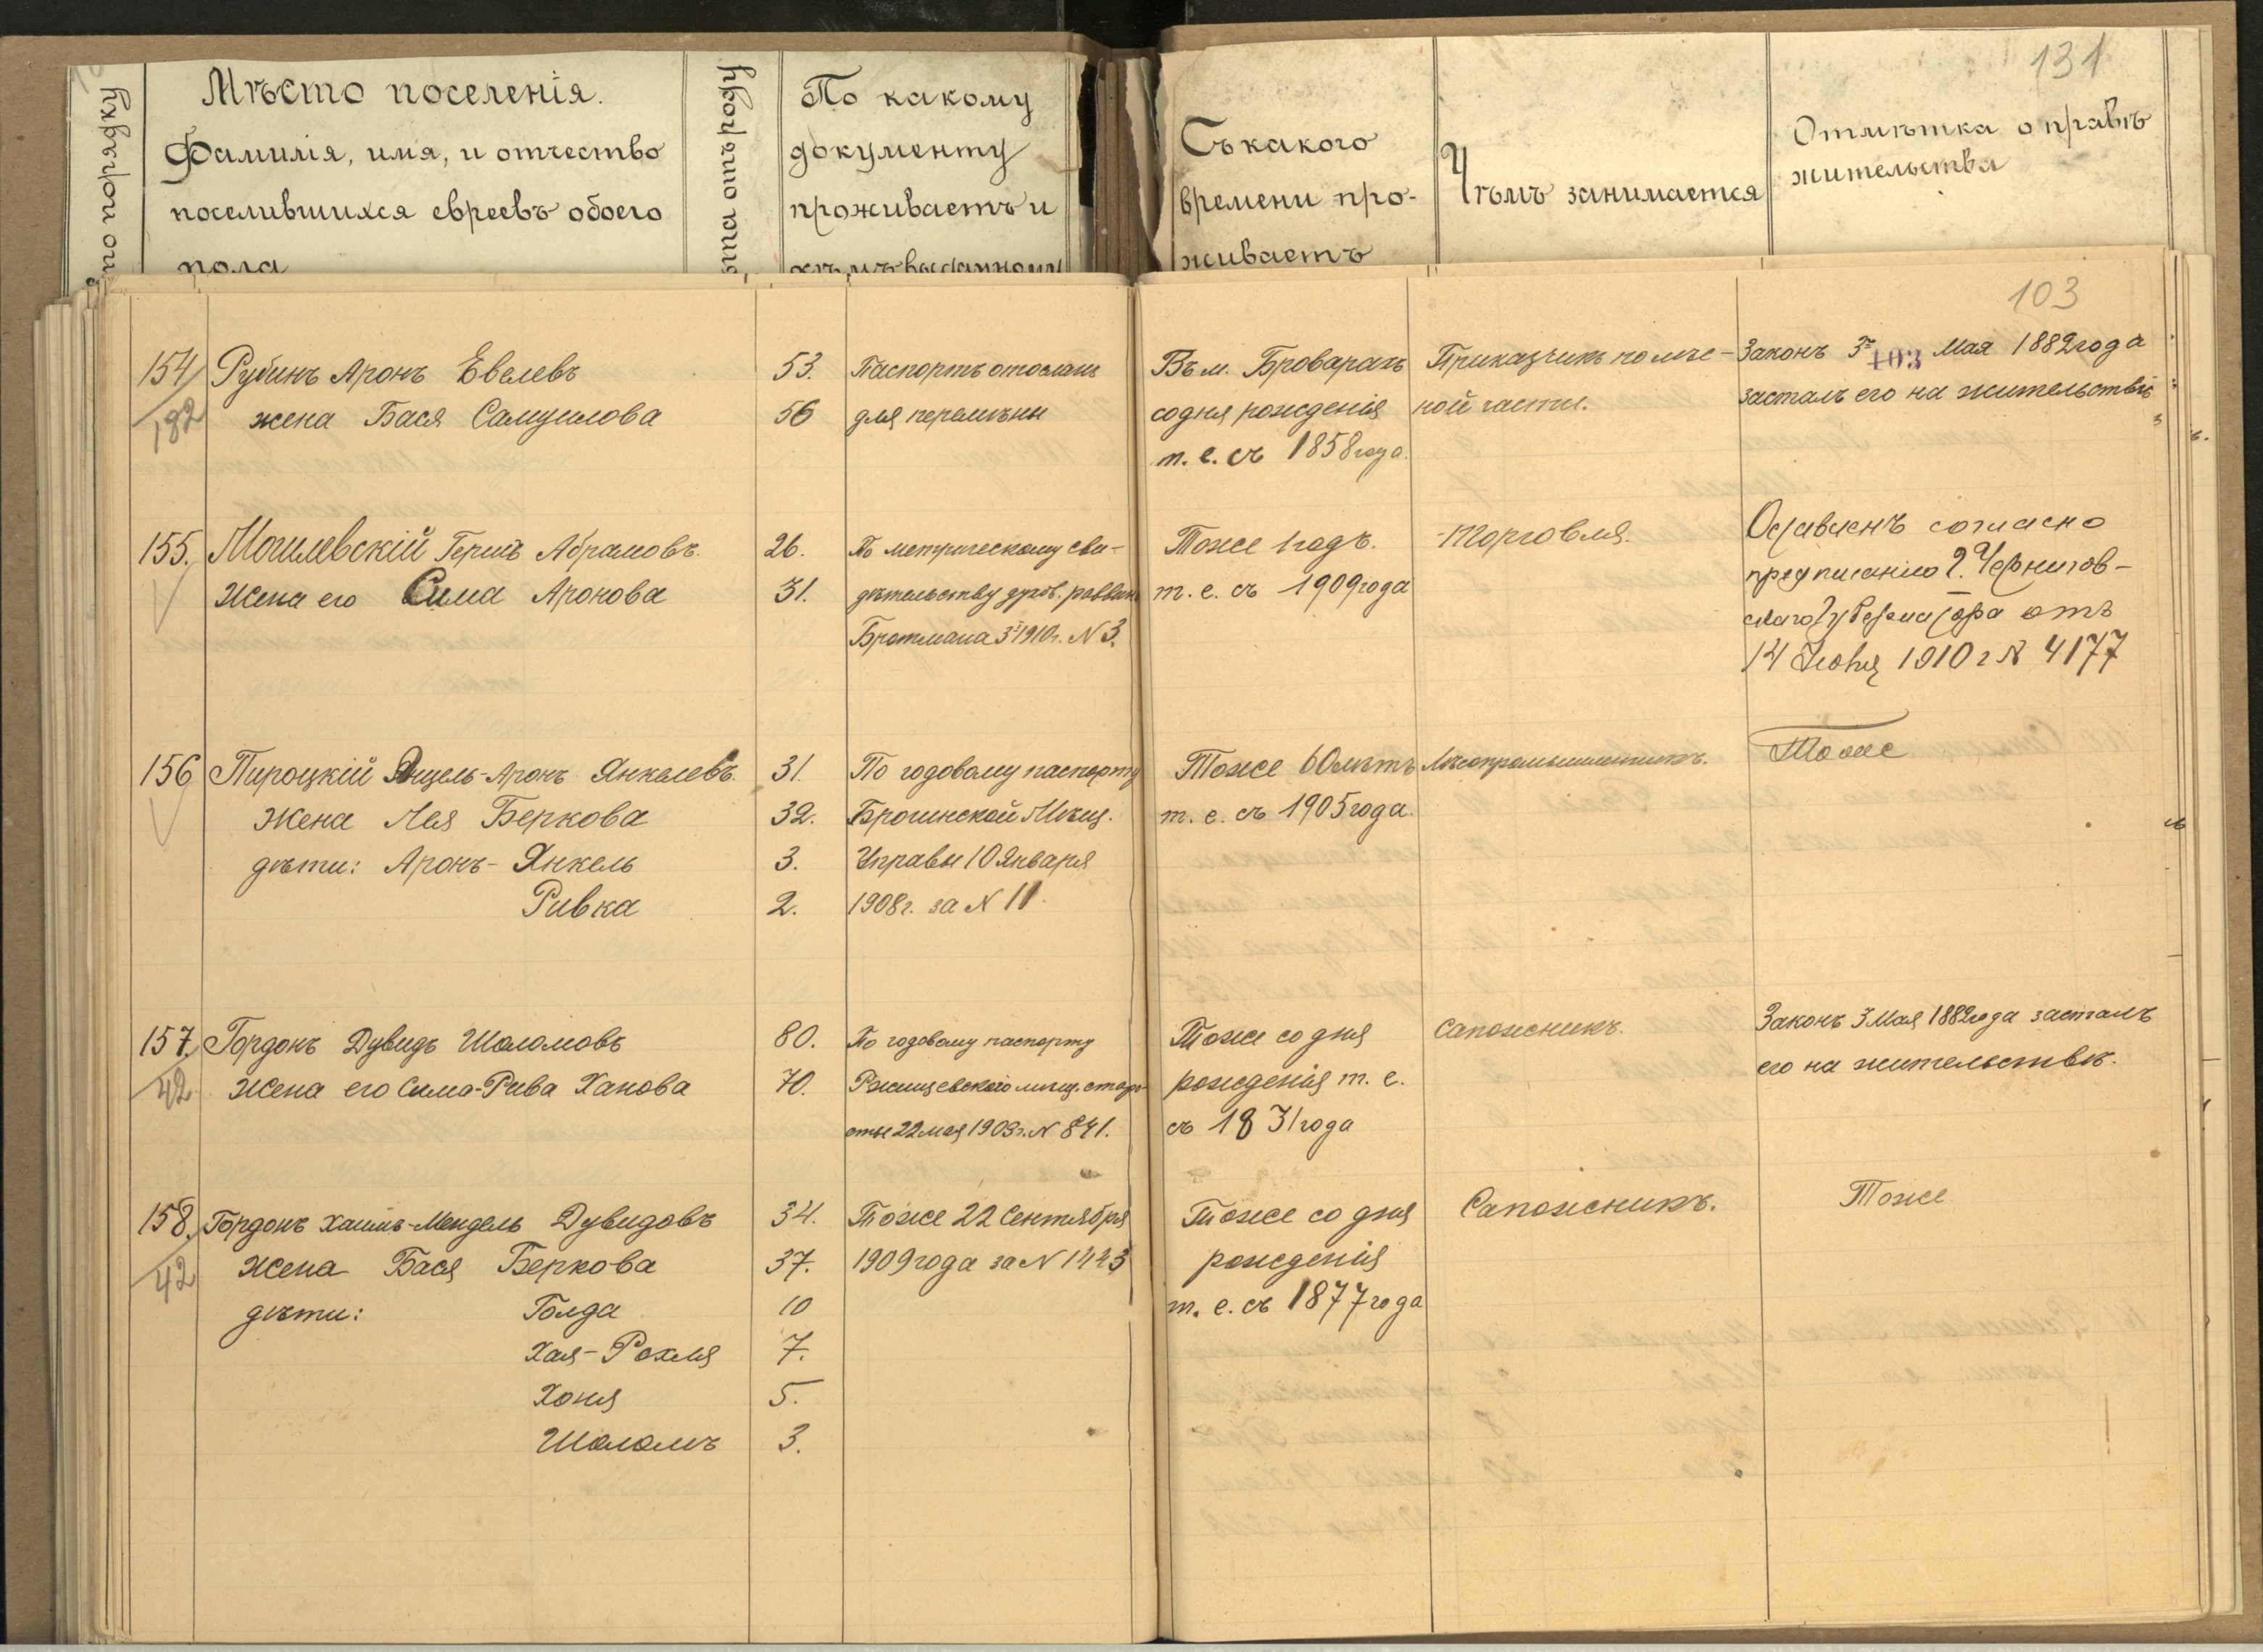 131
по порядку
Мѣсто поселенія.
Фамилія, имя, и отчество
поселившихся евреевъ обоего
пола
отъ роду
По какому
документу
проживаетъ и
кѣмъ выданному
Съ какого
времени про-
живаетъ
Чѣмъ занимается
Отмѣтка о правѣ
жительства
103
103
154
182
Рубинъ Аронъ Евелевъ 53.
жена Бася Самуилова 56
Паспортъ отосланъ
для перемѣны
Въ м. Броварахъ
со дня рожденія
т. е. съ 1858 года.
Приказчикъ по
ной части.
Законъ 3го Мая 1882 года
засталъ его на жительствѣ
155.
Могилевскій Гершъ Абрамовъ. 26.
Жена его Сима Аронова 31.
По метрическому сви-
дѣтельству раввина
Бротмана 1910г. N 3.
Тоже 1 годъ.
т. е. съ 1909 года
Торговля.
Оставленъ согласно
предписанію Г. Чернигов-
скаго Губернатора отъ
14 Іюня 1910 г N 4177
156
Пироцкій Анцель-Аронъ Янкелевъ. 31.
Жена Лея Беркова 32.
дѣти: Аронъ-Янкель 3.
Ривка 2.
По годовому паспорту
Мѣщ.
Управы 10 Января
1908г. за N 11.
Тоже лѣтъ
т. е. съ 1905 года.
Лѣсопромышленникъ.
Тоже
157.
42
Гордонъ Дувидъ Шоломовъ 80.
Жена его Сима-Рива Ханова 70.
По годовому паспорту
Ржищевского мѣщ. старо-
сты 22 мая 1909г. N 841.
Тоже со дня
рожденія т. е.
съ 1831 года
Сапожникъ.
Законъ 3 Мая 1882 года засталъ
его на жительствѣ.
158.
42
Гордонъ Хаимъ-Мендель Дувидовъ 34.
Жена Бася Беркова 37.
дѣти: Голда 10
Хая-Рохля 7.
Хоня 5.
Шоломъ 3.
Тоже 22 Сентября
1909 года за N 1443
Тоже со дня
рожденія
т. е. съ 1877 года
Сапожникъ.
Тоже